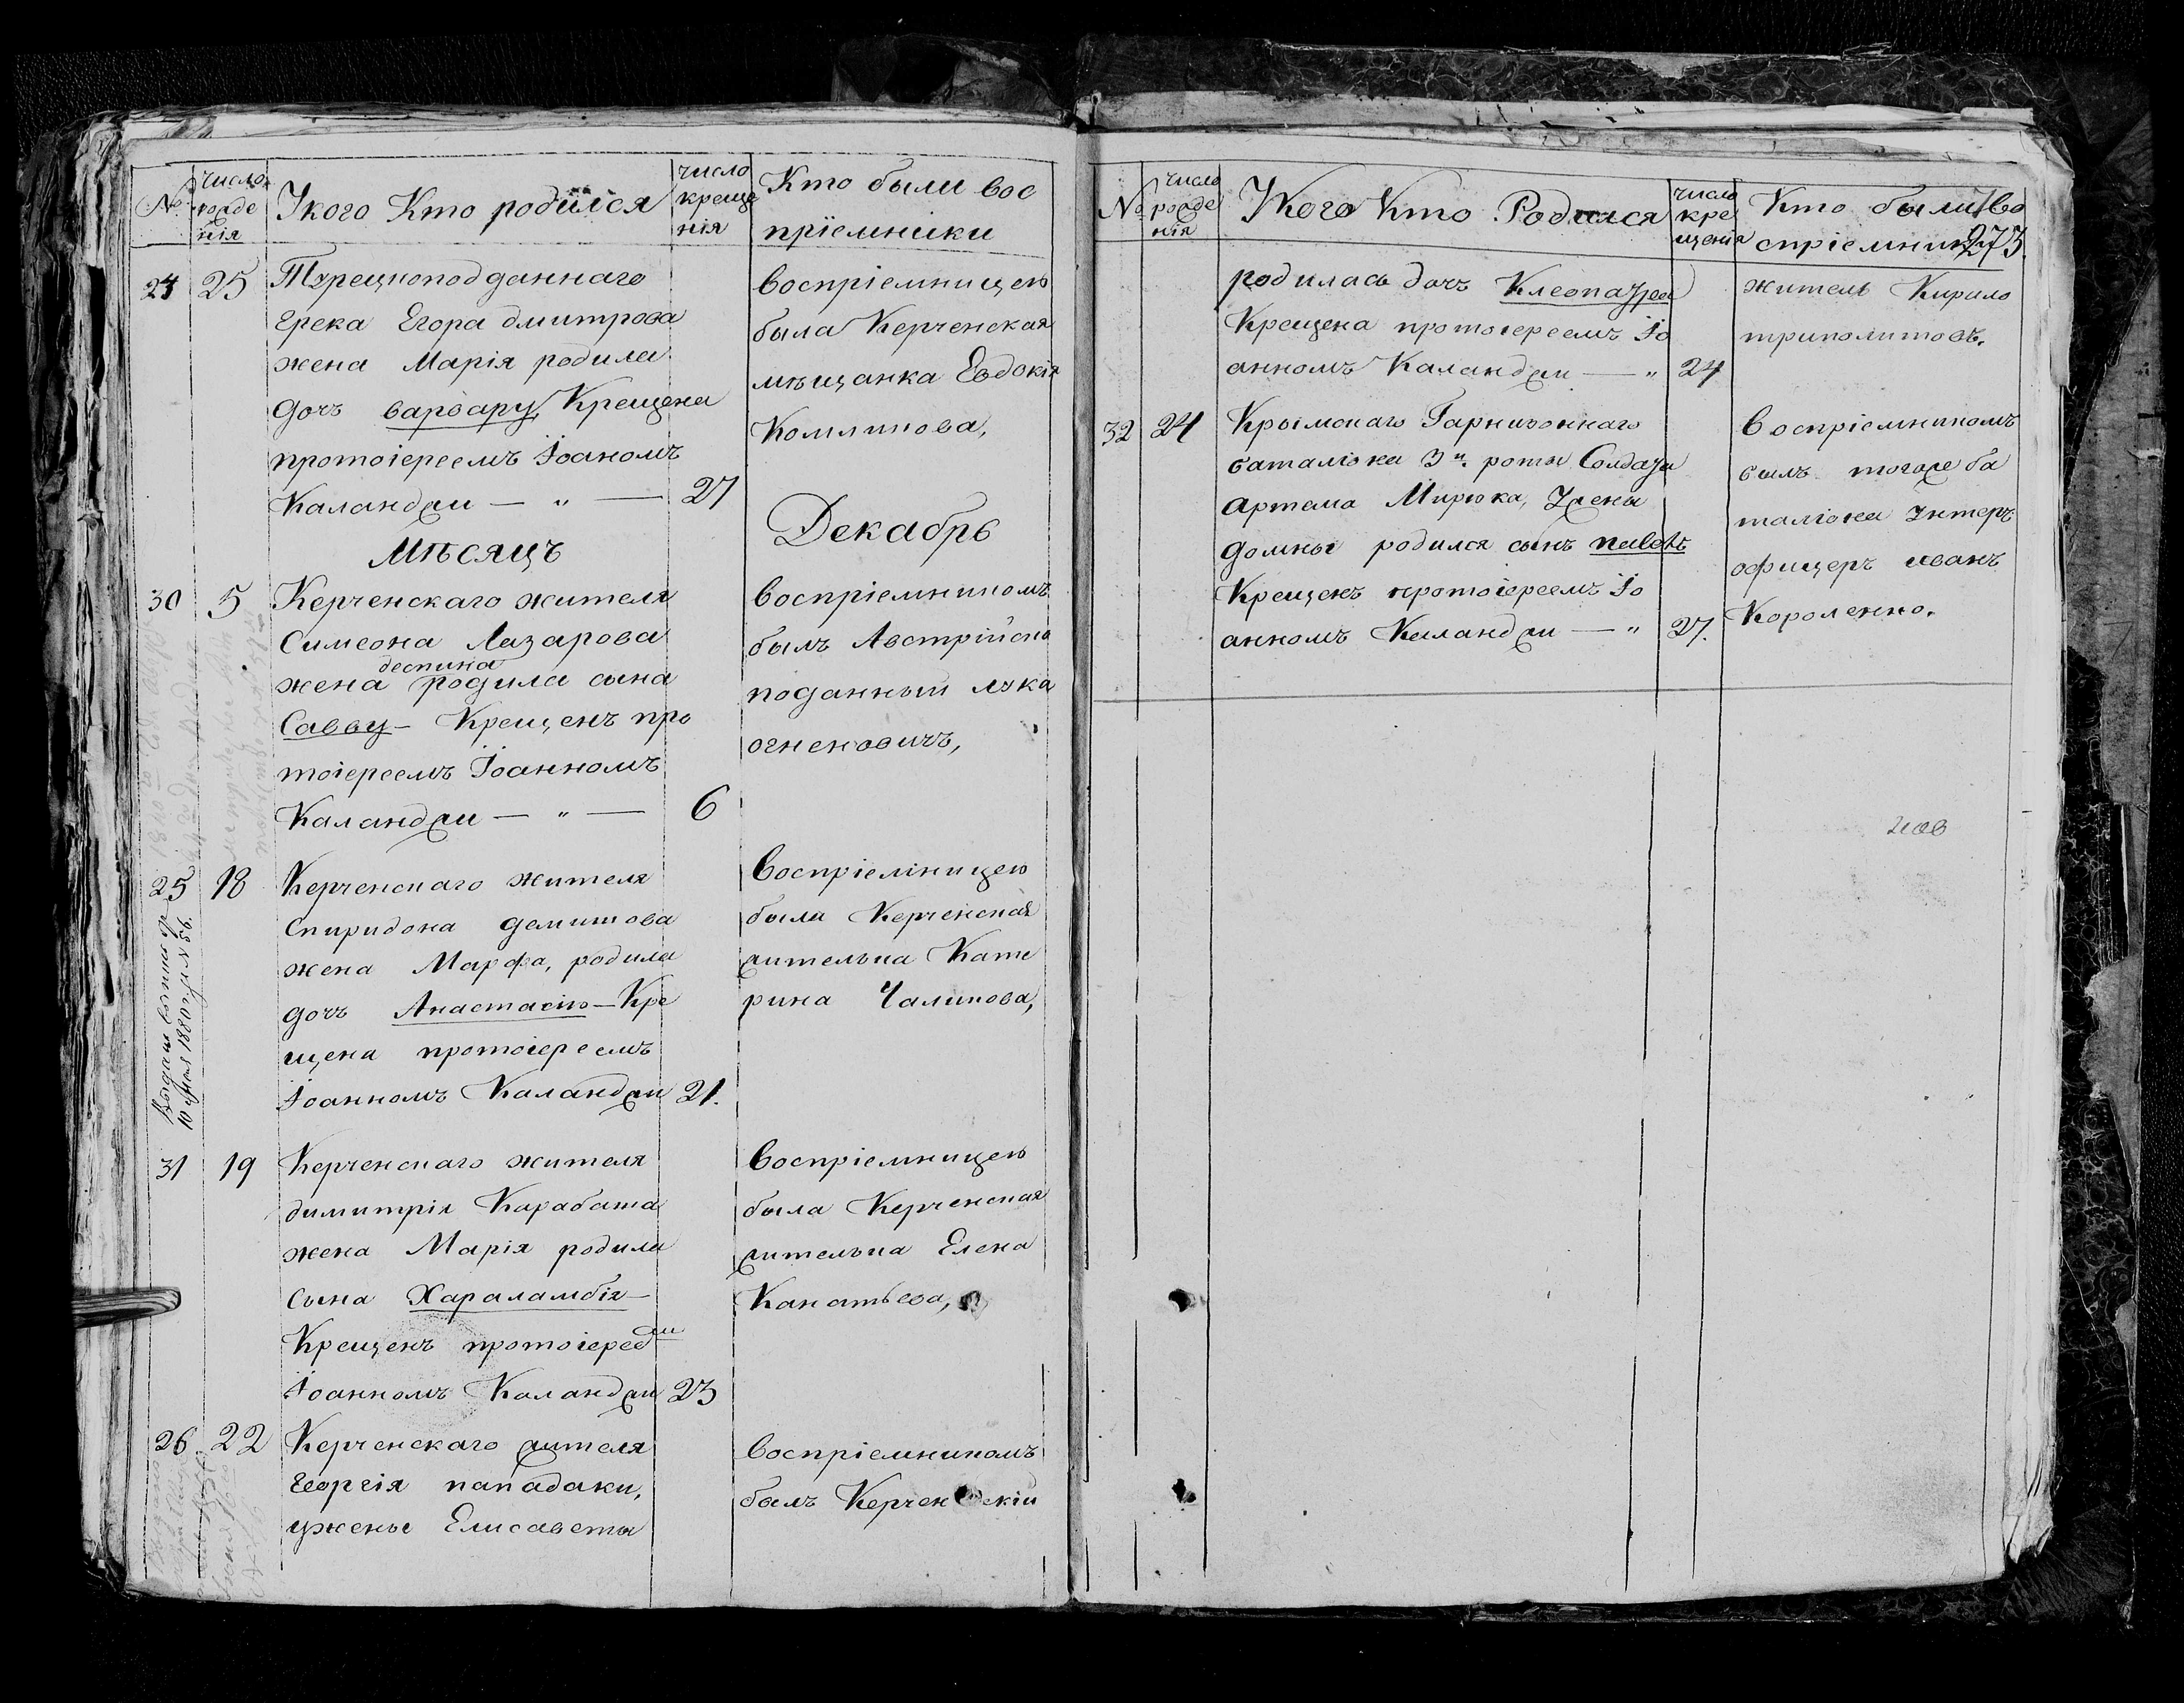 №
число рожде нія
Укого Кто родился
число креще нія
Кто были вос
пріемники
24 25 Турецкоподданнаго
грека Егора дмитрова
жена Марія родила
дочь варвару, Крещена
протоіереемъ Іоаномъ
Каланджи — " — 27
воспріемницею
была Керченская
мѣщанка Евдокія
Мѣсяцъ Декабрь
30 5 Керченскаго жителя
Симеона Лазарова
деспина
жена родила сына
Савву — Крещенъ про
тоіереемъ Іоанномъ
Каланджи — " — 6
воспріемникомъ
былъ Австрійско
поданный лука
огненовичъ,
25 18 Керченскаго жителя
Спиридона
жена Марфа, родила
дочь Анастасію — Кре
щена протоіереемъ
Іоанномъ Каланджи 21.
воспріемницею
была Керченская
жителька Кате
рина Чаликова,
10 1880 году № 56.
31 19 Керченскаго жителя
димитрія Карабаша
жена Марія родила
сына Хараламбія —
Крещенъ протоіерее
мъ
Іоанномъ Каланджи 23
воспріемницею
была Керченская
жителька Елена
26 22 Керченскаго жителя
Георгія пападаки,
ужены Елисаветы
воспріемникомъ
былъ Керченскій
№
число рожде нія
Укого Кто Родился
число кре щенія
Кто были Во
спріемники
273.
родилась дочь Клеопатра
Крещена протоіереемъ Іо
анномъ Каланджи — " 24
житель Кирило
триполитовъ.
32 24 Крымскаго Гарнизоннаго
баталіона 3й. роты Солдата
артема Мирюка, Ужены
домны родился сынъ павелъ
Крещенъ протоіереемъ Іо
анномъ Каланджи — " 27.
воспріемникомъ
былъ тогоже ба
таліона Унтеръ
офицеръ иванъ
Короленко.